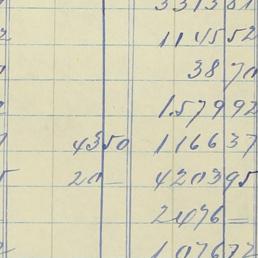 331381
114552
3870
157992
4350 116637
20— 420395
2476—
107672